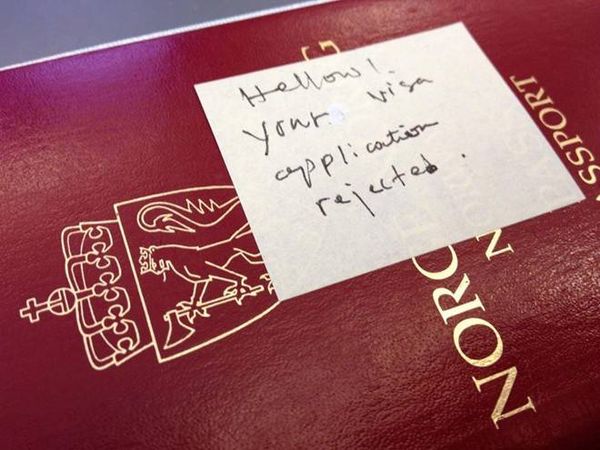 Hellow!
Your visa
application
rejected.
NORGE
PASSPORT